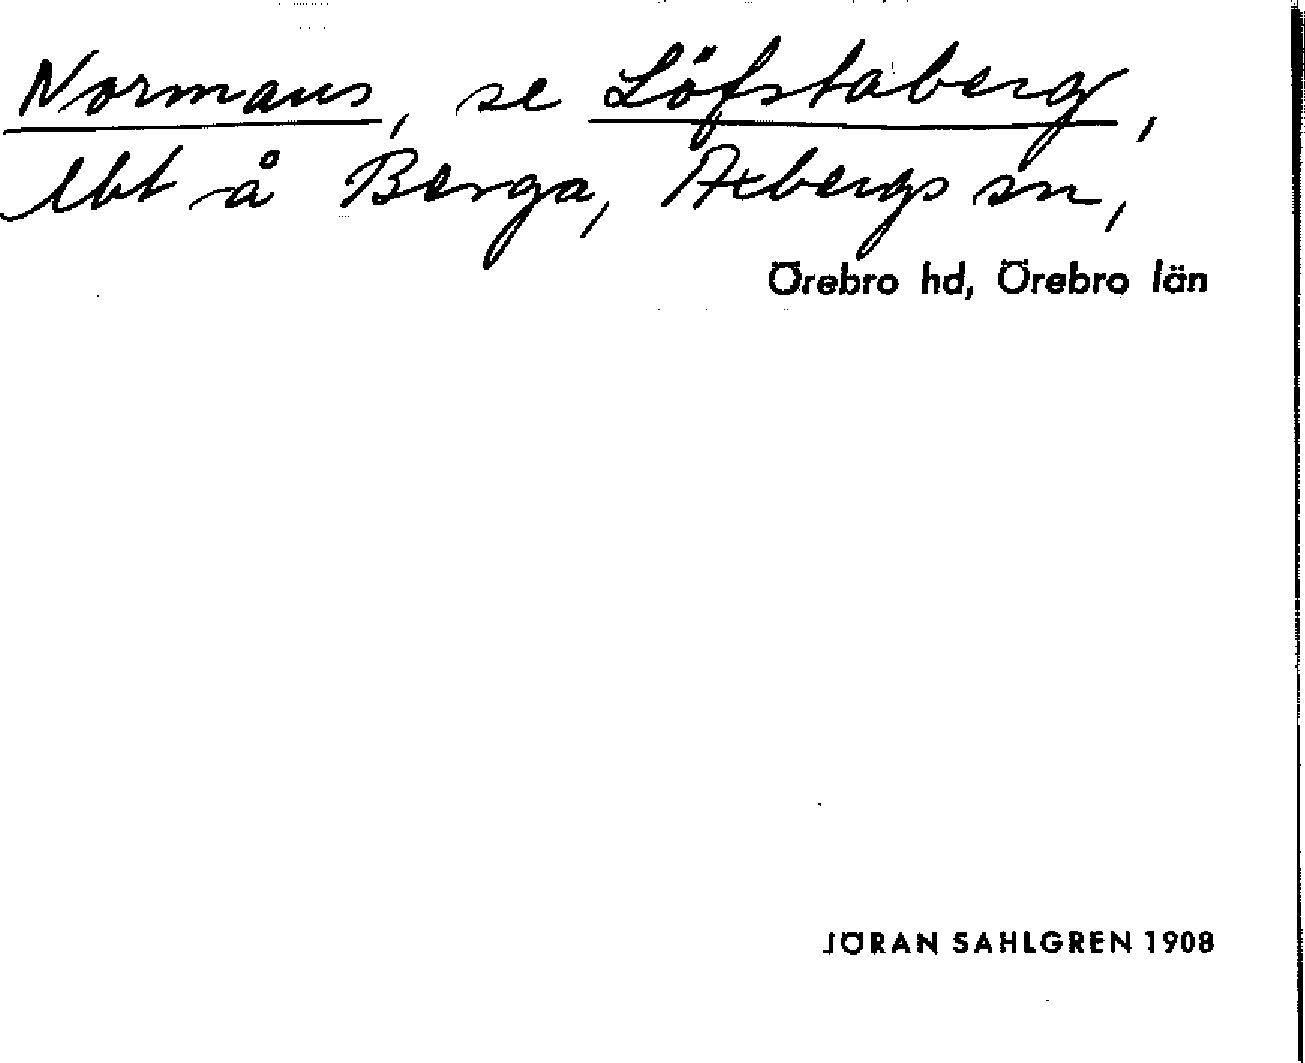 Normans, se Löfstaberg,
lht å Berga, Axbergs sn,
Örebro hd, Örebro län
JÖRAN SAHLGREN 1908